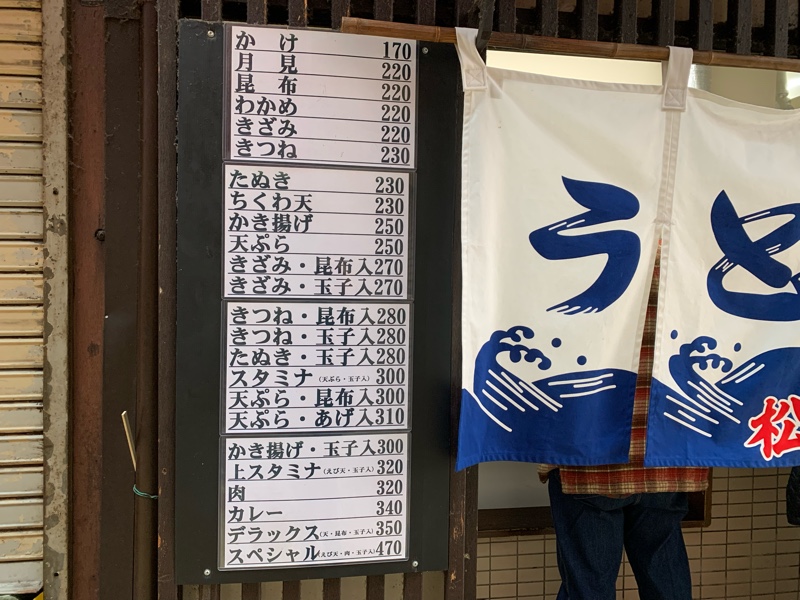 かけ 170
月見 220
昆布 220
わかめ 220
きざみ 220
きつね 230
たぬき 230
ちくわ天 230
かき揚げ 250
天ぷら 250
きざみ・昆布入 270
きざみ・玉子入 270
きつね・昆布入 280
きつね・玉子入 280
たぬき・玉子入 280
スタミナ(天ぷら・玉子入) 300
天ぷら・昆布入 300
天ぷら・あげ入 310
かき揚げ・玉子入 300
上スタミナ(えび天・玉子入) 320
肉 320
カレー 340
デラックス(天・昆布・玉子入) 350
スペシャル(えび天・肉・玉子入) 470
うど
松